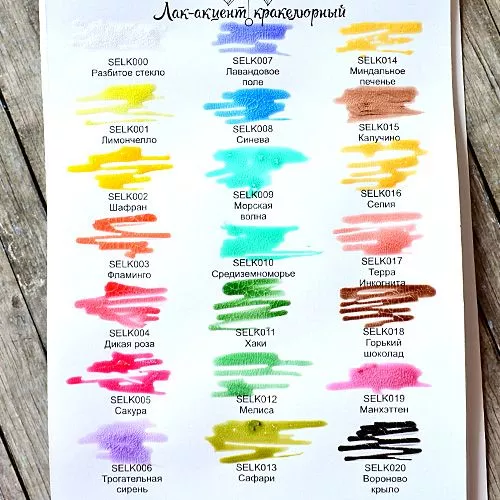 Лак-акцент кракелюрный
SELK000
Разбитое стекло
SELK007
Лавандовое
поле
SELK014
Миндальное
печенье
SELK001
Лимончелло
SELK008
Синева
SELK015
Капучино
SELK002
Шафран
SELK009
Морская
волна
SELK016
Сепия
SELK003
Фламинго
SELK010
Средиземноморье
SELK017
Терра
Инкогнита
SELK004
Дикая роза
SELK011
Хаки
SELK018
Горький
шоколад
SELK005
Сакура
SELK012
Мелиса
SELK019
Манхэттен
SELK006
Трогательная
сирень
SELK013
Сафари
SELK020
Вороново
крыло